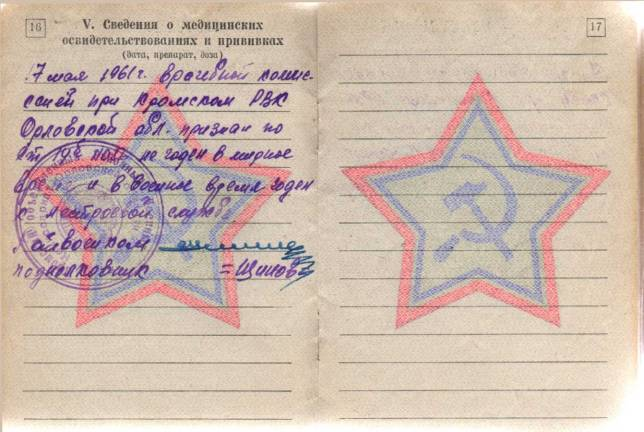 16
V. Сведения о медицинских
освидетельствованиях и прививках
(дата, препарат, доза)
17 мая 1961г. врачебной комис-
сией при Кромском РВК
Орловской обл. признан по
ст. не годен в мирное
время и в военное время годен
к нестроевой службе
Райвоенком
подполковник = Шилов
17